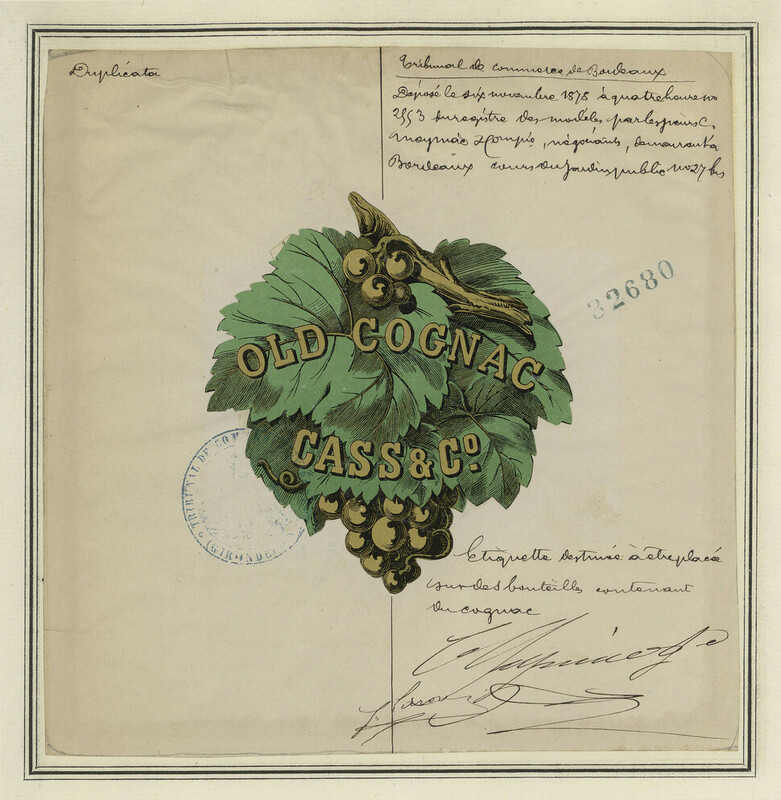 Duplicata
Tribunal de commerce de Bordeaux
Déposé le six novembre 1878 à quatre heure no
2553 du registre des modèles par les sieurs C.
Meymac & Compie, négociants, demeurant à
Bordeaux cours du Jardin public no 27 bis
32680
OLD COGNAC
CASS & Co.
TRIBUNAL DE COM
(GIRONDE)
Etiquette destinée à être placée
sur des bouteilles contenant
du cognac